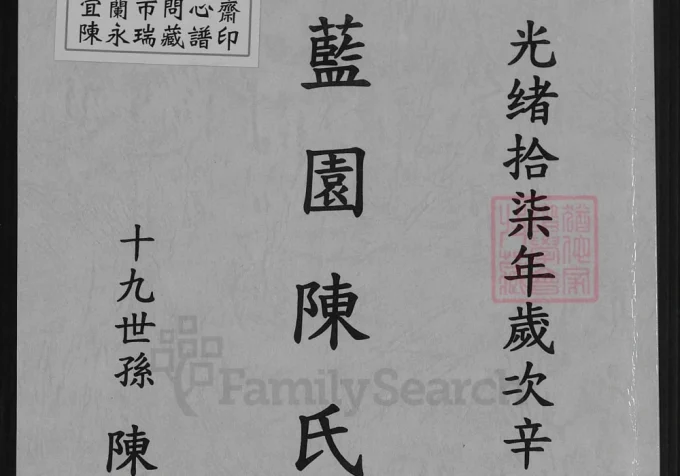 光绪拾柒年歲次辛
藍園陳氏
十九世孫 陳
宜蘭市問心齋
陳永瑞藏譜印
FamilySearch